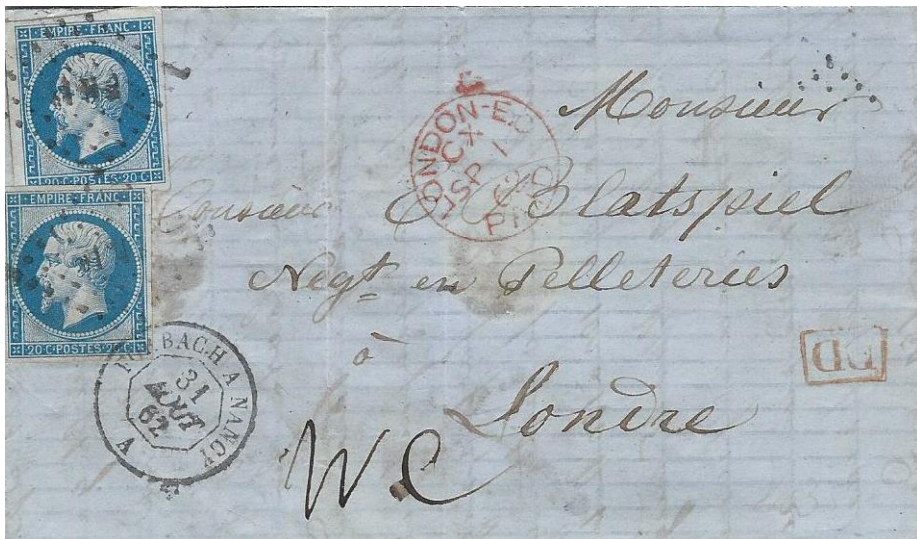 EMPIRE·FRANC·
20 C·POSTES·20 C·
EMPIRE·FRANC·
20 C·POSTES·20 C·
LONDON-E.C
CX
SP 1
62
PAID
Monsieur
Blatspiel
Negt en Pelleteries
à
Londre
PD
FORBACH A NANCY
31
AOUT
62
A
W.C